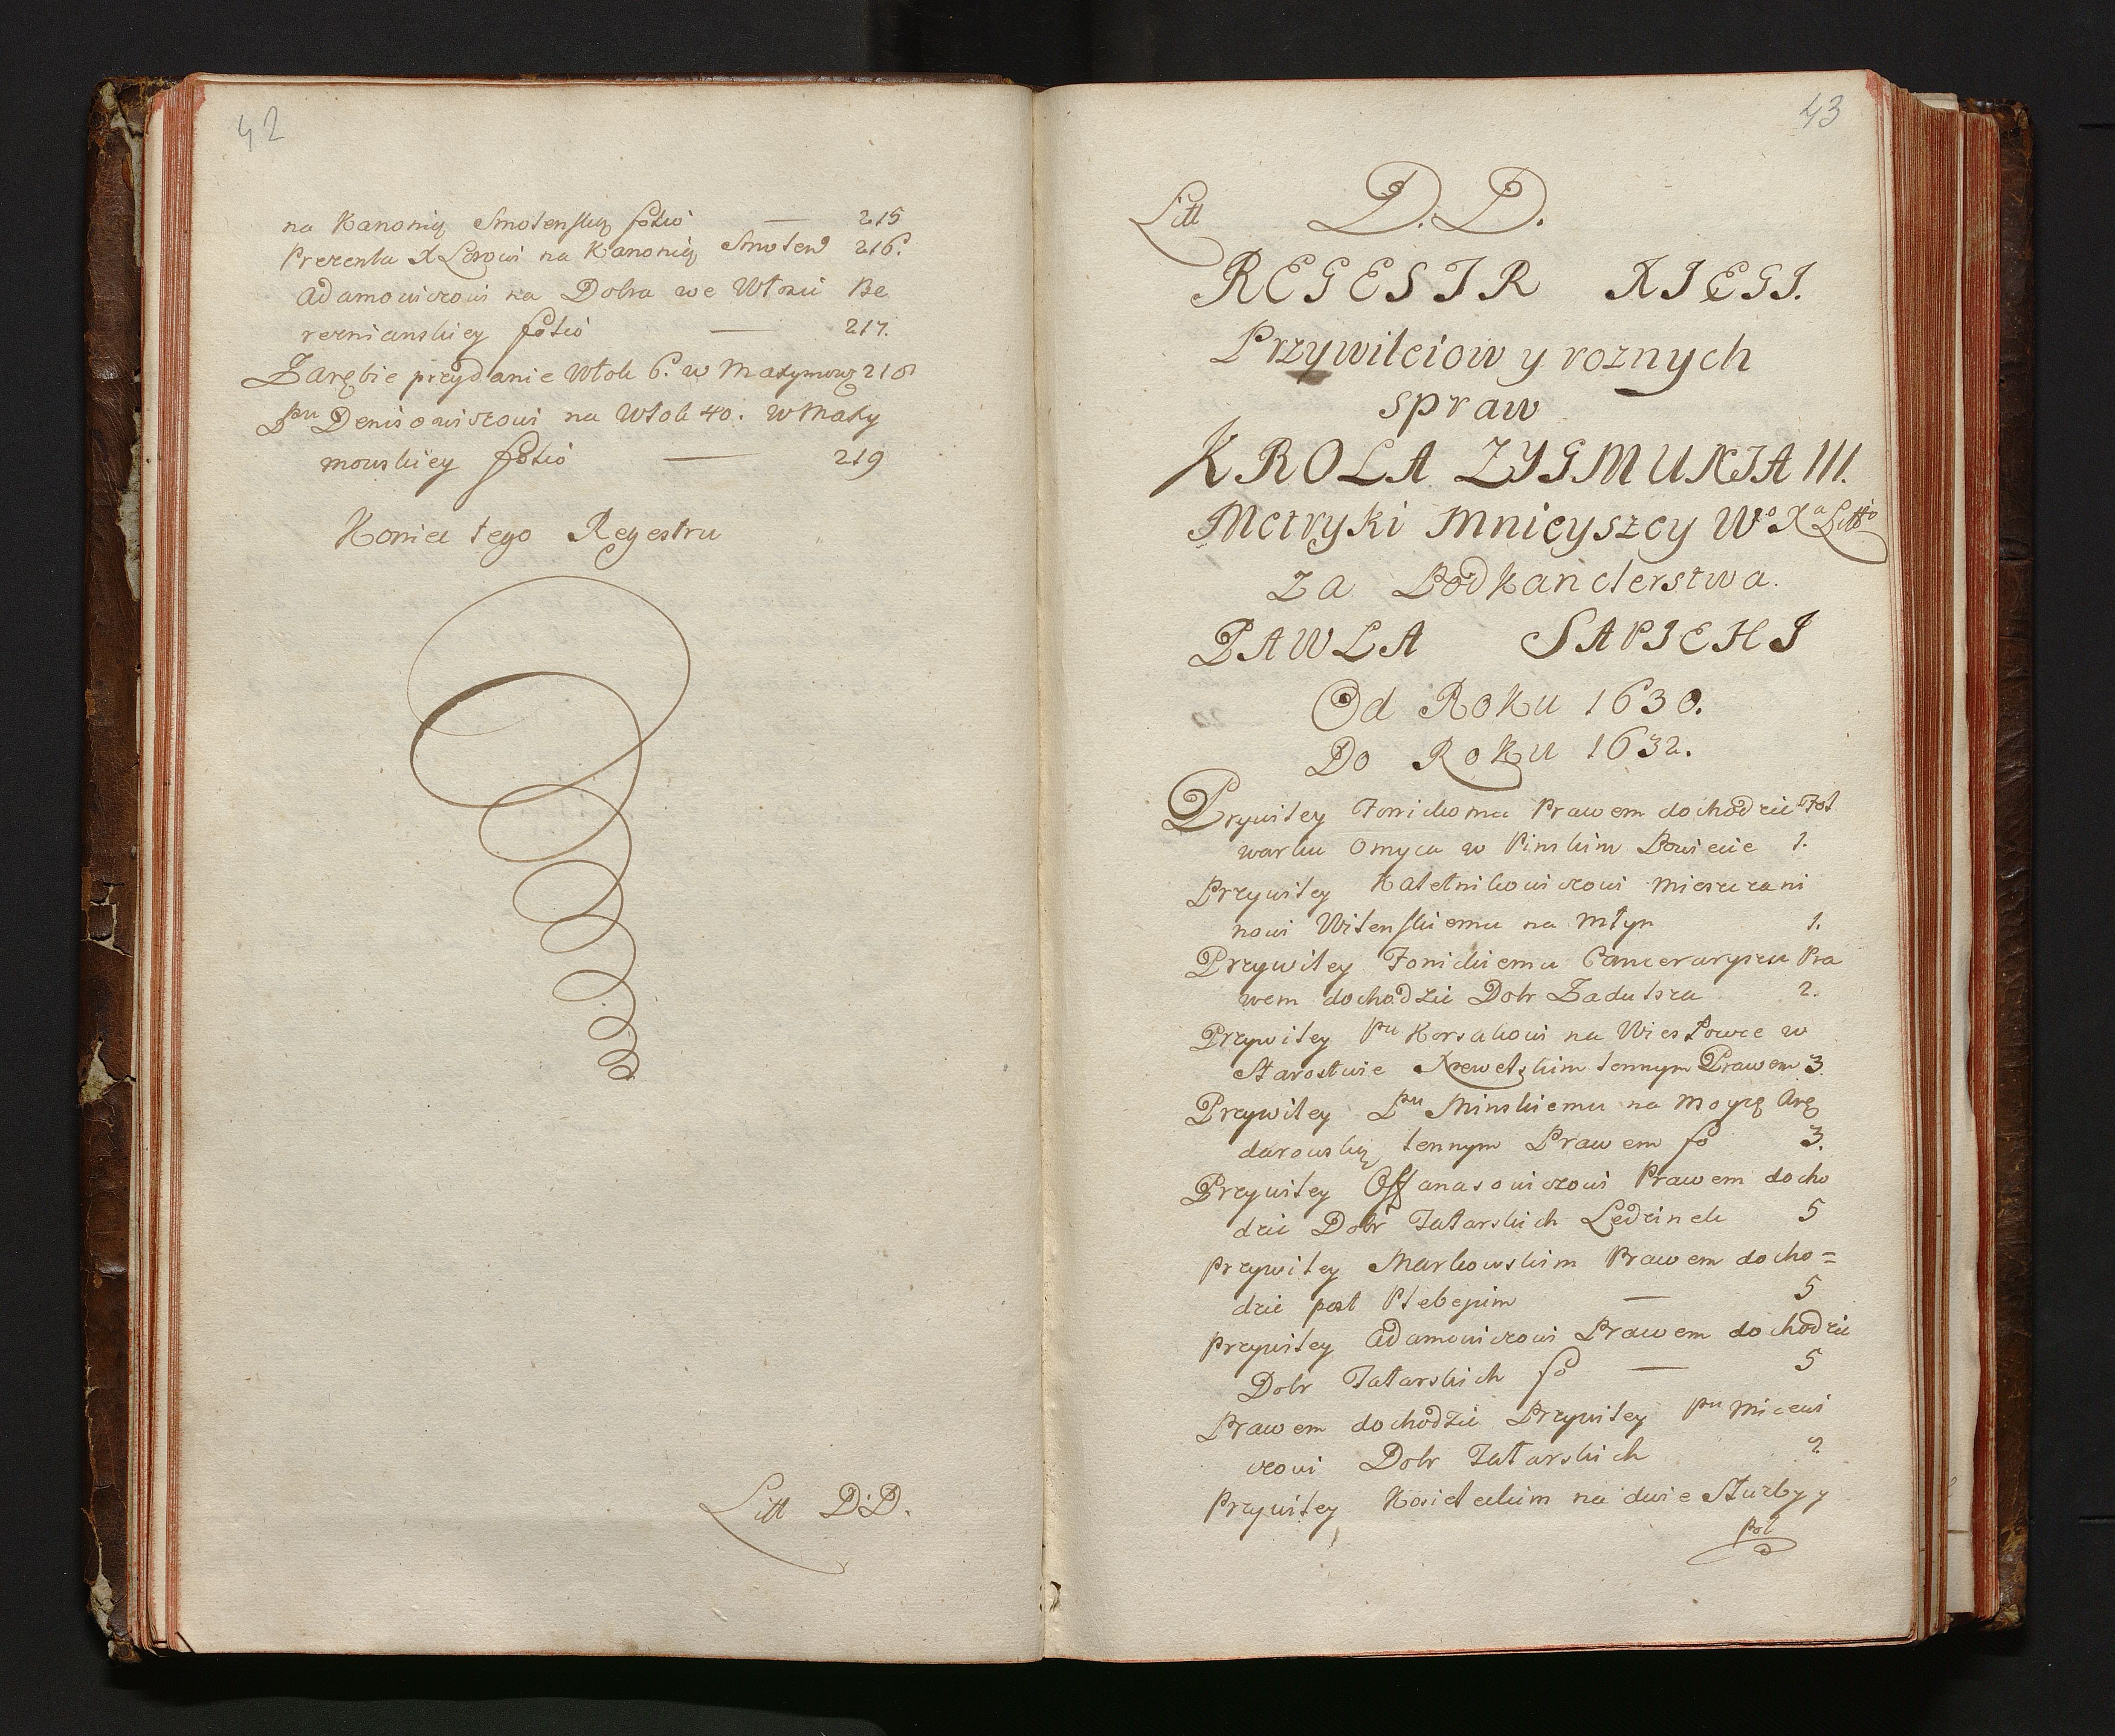 42
na Kanonią Smolenską folió — 215
Prezenta X Lwowi na Kanonią Smolen 216.
Adamowiczowi na Dobra we Włości Be
rezniańskiey folió — 217.
Zarębie przydanie Włok 6. w Maxymow 218
Pu Denisowiczowi na Włok 40. w Maxy
mowskiey folió — 219
Koniec tego Regestru
Litt D.D.
43
Litt D.D.
REGESTR XIĘGI.
Przywileiow y roznych
spraw
KROLA ZYGMUNTA III.
Metryki Mnieyszey Wo Xa Litto
za Podkanclerstwa.
PAWLA SAPIEHI
Od Roku 1630.
Do Roku 1632.
Prywiley Prawem dochodzic Fol
warku Omyca w Pinskim Powiecie 1.
Przywiley Kaletnikowiczowi Mieszczani
nowi Wilenskiemu na Młyn 1.
Przywiley Canceraryszu Pra
wem dochodzic Dobr 2.
Przywiley Pu Korsakowi na Wiesłowce w
Starostwie lennym Prawem 3.
Przywiley Pu Minskiemu na Moyzą Arę
darowską lennym Prawem fo 3.
Przywiley Offanasowiczowi Prawem docho
dzic Dobr Tatarskich Lędzinek 5
Przywiley Markowskim Prawem docho=
dzic post Plebejum — 5
Przywiley Adamowiczowi Prawem dochodzic
Dobr Tatarskich fo — 5
Prawem dochodzic Przywiley Pu Micewi
czowi Dobr Tatarskich ?
Przywiley na dwie Służby y
pol